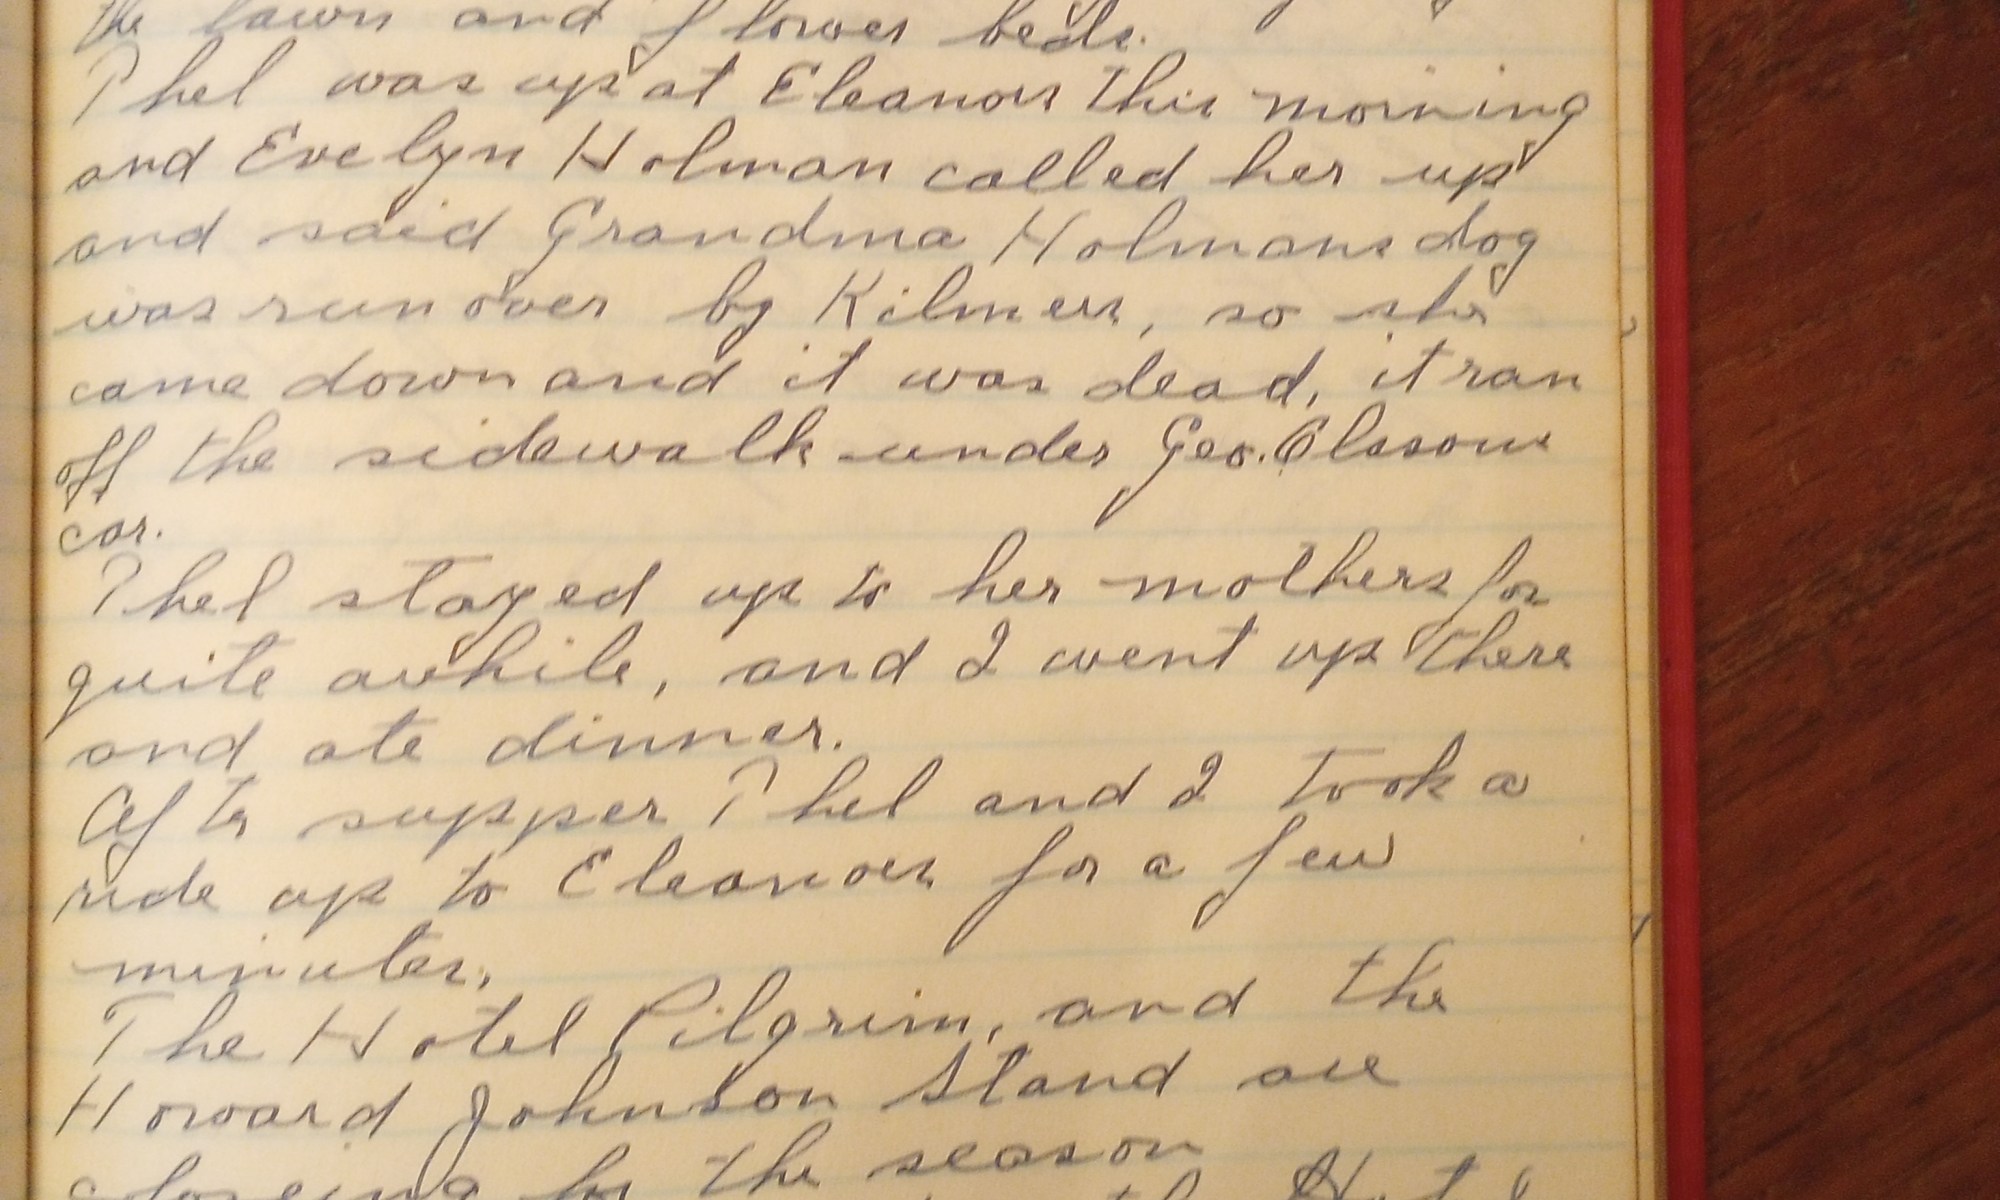 the lawn and flower beds.
Phel was up at Eleanors this morning
and Evelyn Holman called her up
and said Grandma Holmans dog
was run over by Kilmers, so she
came down and it was dead, it ran
off the sidewalk under Geo. Olssons
car.
Phel stayed up to her mothers for
quite awhile, and I went up there
and ate dinner.
After supper Phel and I took a
ride up to Eleanors for a few
minutes.
The Hotel Pilgrim, and the
Howard Johnson Stand are
closeing for the season